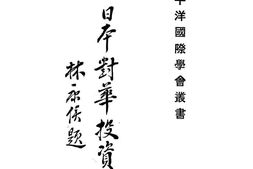 平洋國際學會叢書
日本對華投資
林康侯題